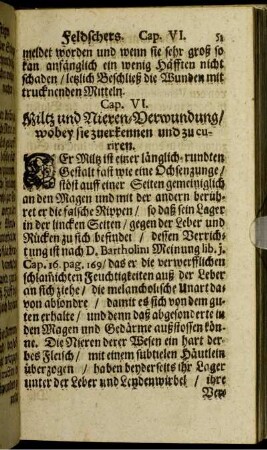 Feldschers. Cap. VI. 51
meldet worden und wenn sie sehr groß so
kan anfänglich ein wenig Häfften nicht
schaden / letzlich Beschließ die Wunden mit
trucknenden Mitteln.
Cap. VI.
Miltz und Nieren-Verwundung /
wobey sie zuerkennen und zu cu-
riren.
DEr Miltz ist einer länglich-rundten
Gestalt fast wie eine Ochsenzunge /
stöst auff einer Seiten gemeiniglich
an den Magen und mit der andern berüh-
ret er die falsche Rippen / so daß sein Lager
in der lincken Seiten / gegen der Leber und
Rücken zu sich befindet / dessen Verrich-
tung ist nach D. Bartholini Meinung lib. j.
Cap. 16. pag. 169 / das er die verwerfflichen
schlaimichten Feuchtigkeiten auß der Leber
an sich ziehe / die melancholische Unart da-
von absondre / damit es sich von dem gu-
ten erhalte / und denn daß abgesonderte in
den Magen und Gedärme außstossen kön-
ne. Die Nieren derer Wesen ein hart der-
bes Fleisch / mit einem subtielen Häutlein
überzogen / haben beyderseits ihr Lager
unter der Leber und Lendenwirbel / ihre
Ver-